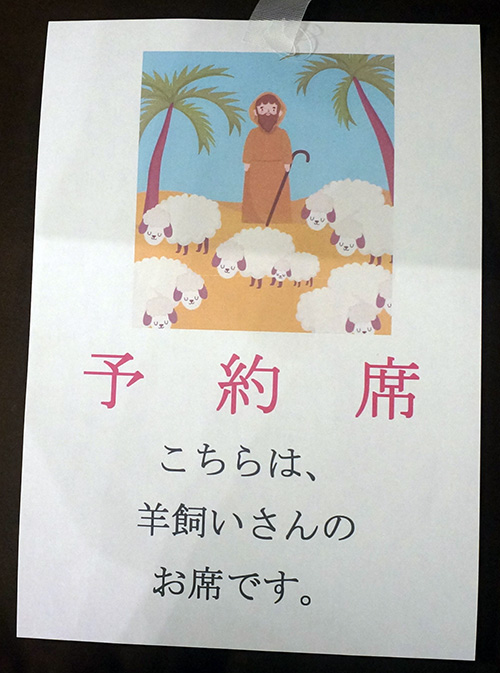 予約席
こちらは、
羊飼いさんの
お席です。